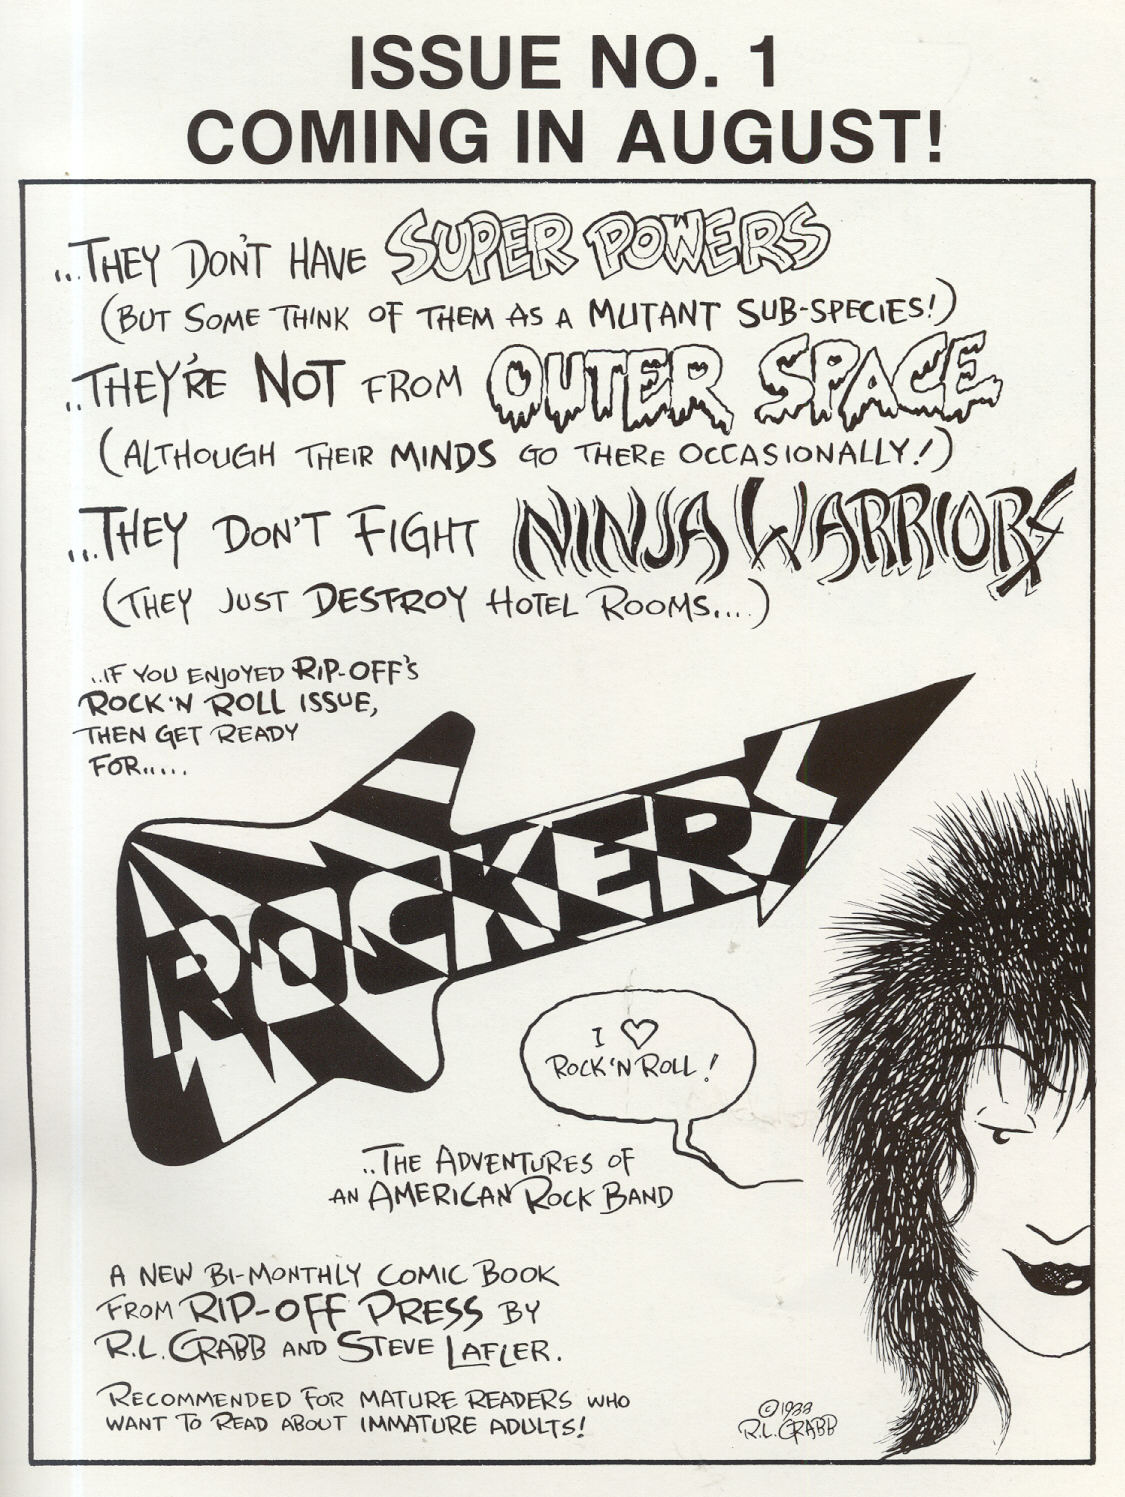 ISSUE NO. 1
COMING IN AUGUST!
...THEY DON'T HAVE SUPER POWERS
(BUT SOME THINK OF THEM AS A MUTANT SUB-SPECIES!)
...THEY'RE NOT FROM OUTER SPACE
(ALTHOUGH THEIR MINDS GO THERE OCCASIONALLY!)
...THEY DON'T FIGHT NINJA WARRIORS
(THEY JUST DESTROY HOTEL ROOMS....)
..IF YOU ENJOYED RIP-OFF'S
ROCK 'N ROLL ISSUE,
THEN GET READY
FOR.....
ROCKERS
I ♡
ROCK 'N ROLL!
..THE ADVENTURES OF
AN AMERICAN ROCK BAND
A NEW BI-MONTHLY COMIC BOOK
FROM RIP-OFF PRESS BY
R.L. CRABB AND STEVE LAFLER.
RECOMMENDED FOR MATURE READERS WHO
WANT TO READ ABOUT IMMATURE ADULTS!
©1988
R.L. CRABB